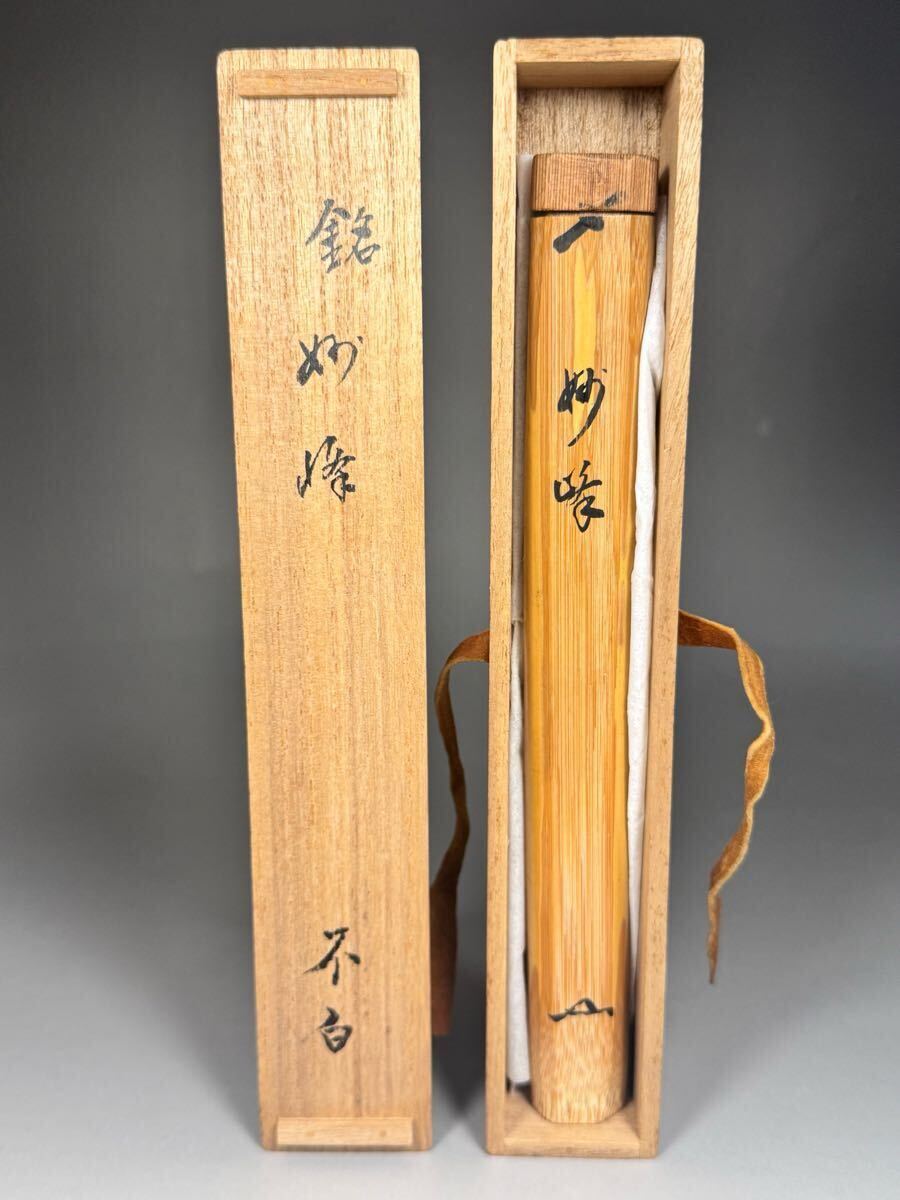 銘
妙峰
不白
妙峰